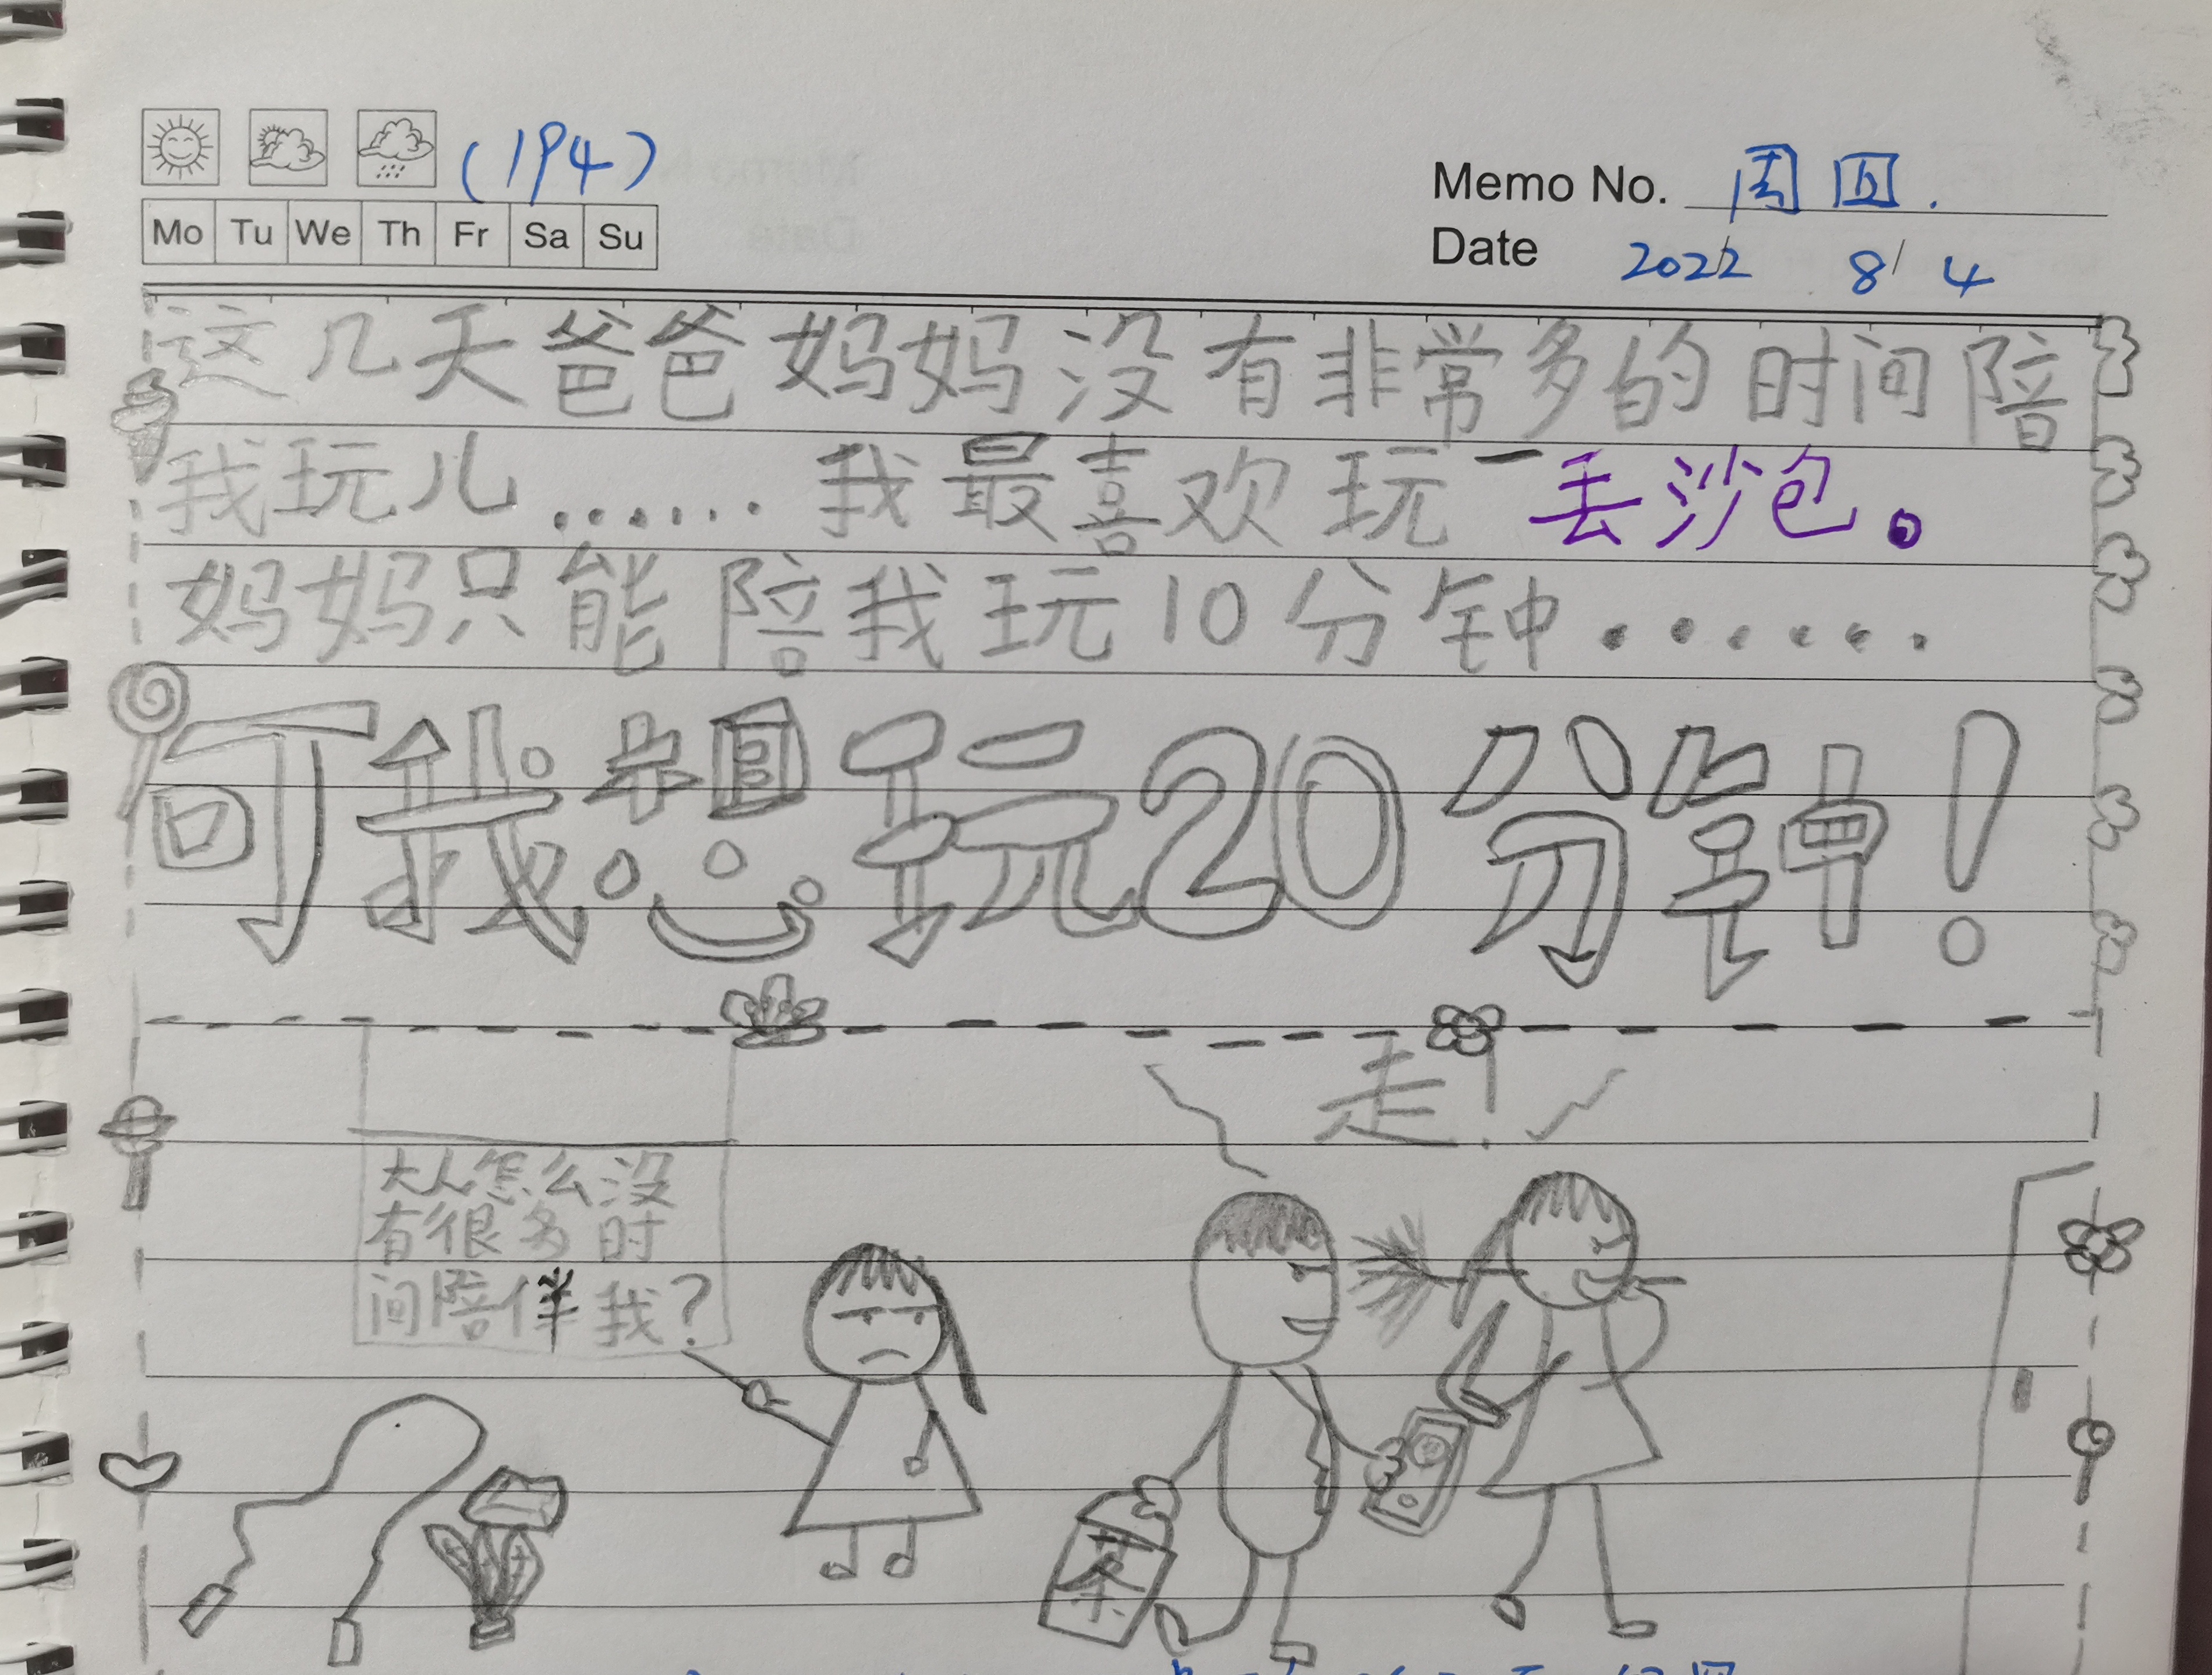 (194)
Memo No. 周四.
Mo Tu We Th Fr Sa Su
Date 2022 8/ 4
这几天爸爸妈妈没有非常多的时间陪
我玩儿……我最喜欢玩一丢沙包。
妈妈只能陪我玩10分钟……
可我想玩20分钟!
走!
大人怎么没
有很多时
间陪伴我?
茶